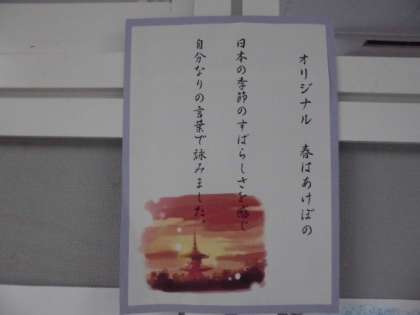 オリジナル　春はあけぼの
日本の季節のすばらしさを感じ
自分なりの言葉で詠みました。